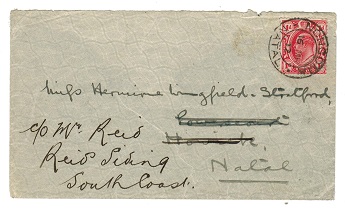 Miss Hermione Wingfield-Stratford,
c/o Mr. Reid
Reid Siding
South Coast.
Natal
NATAL